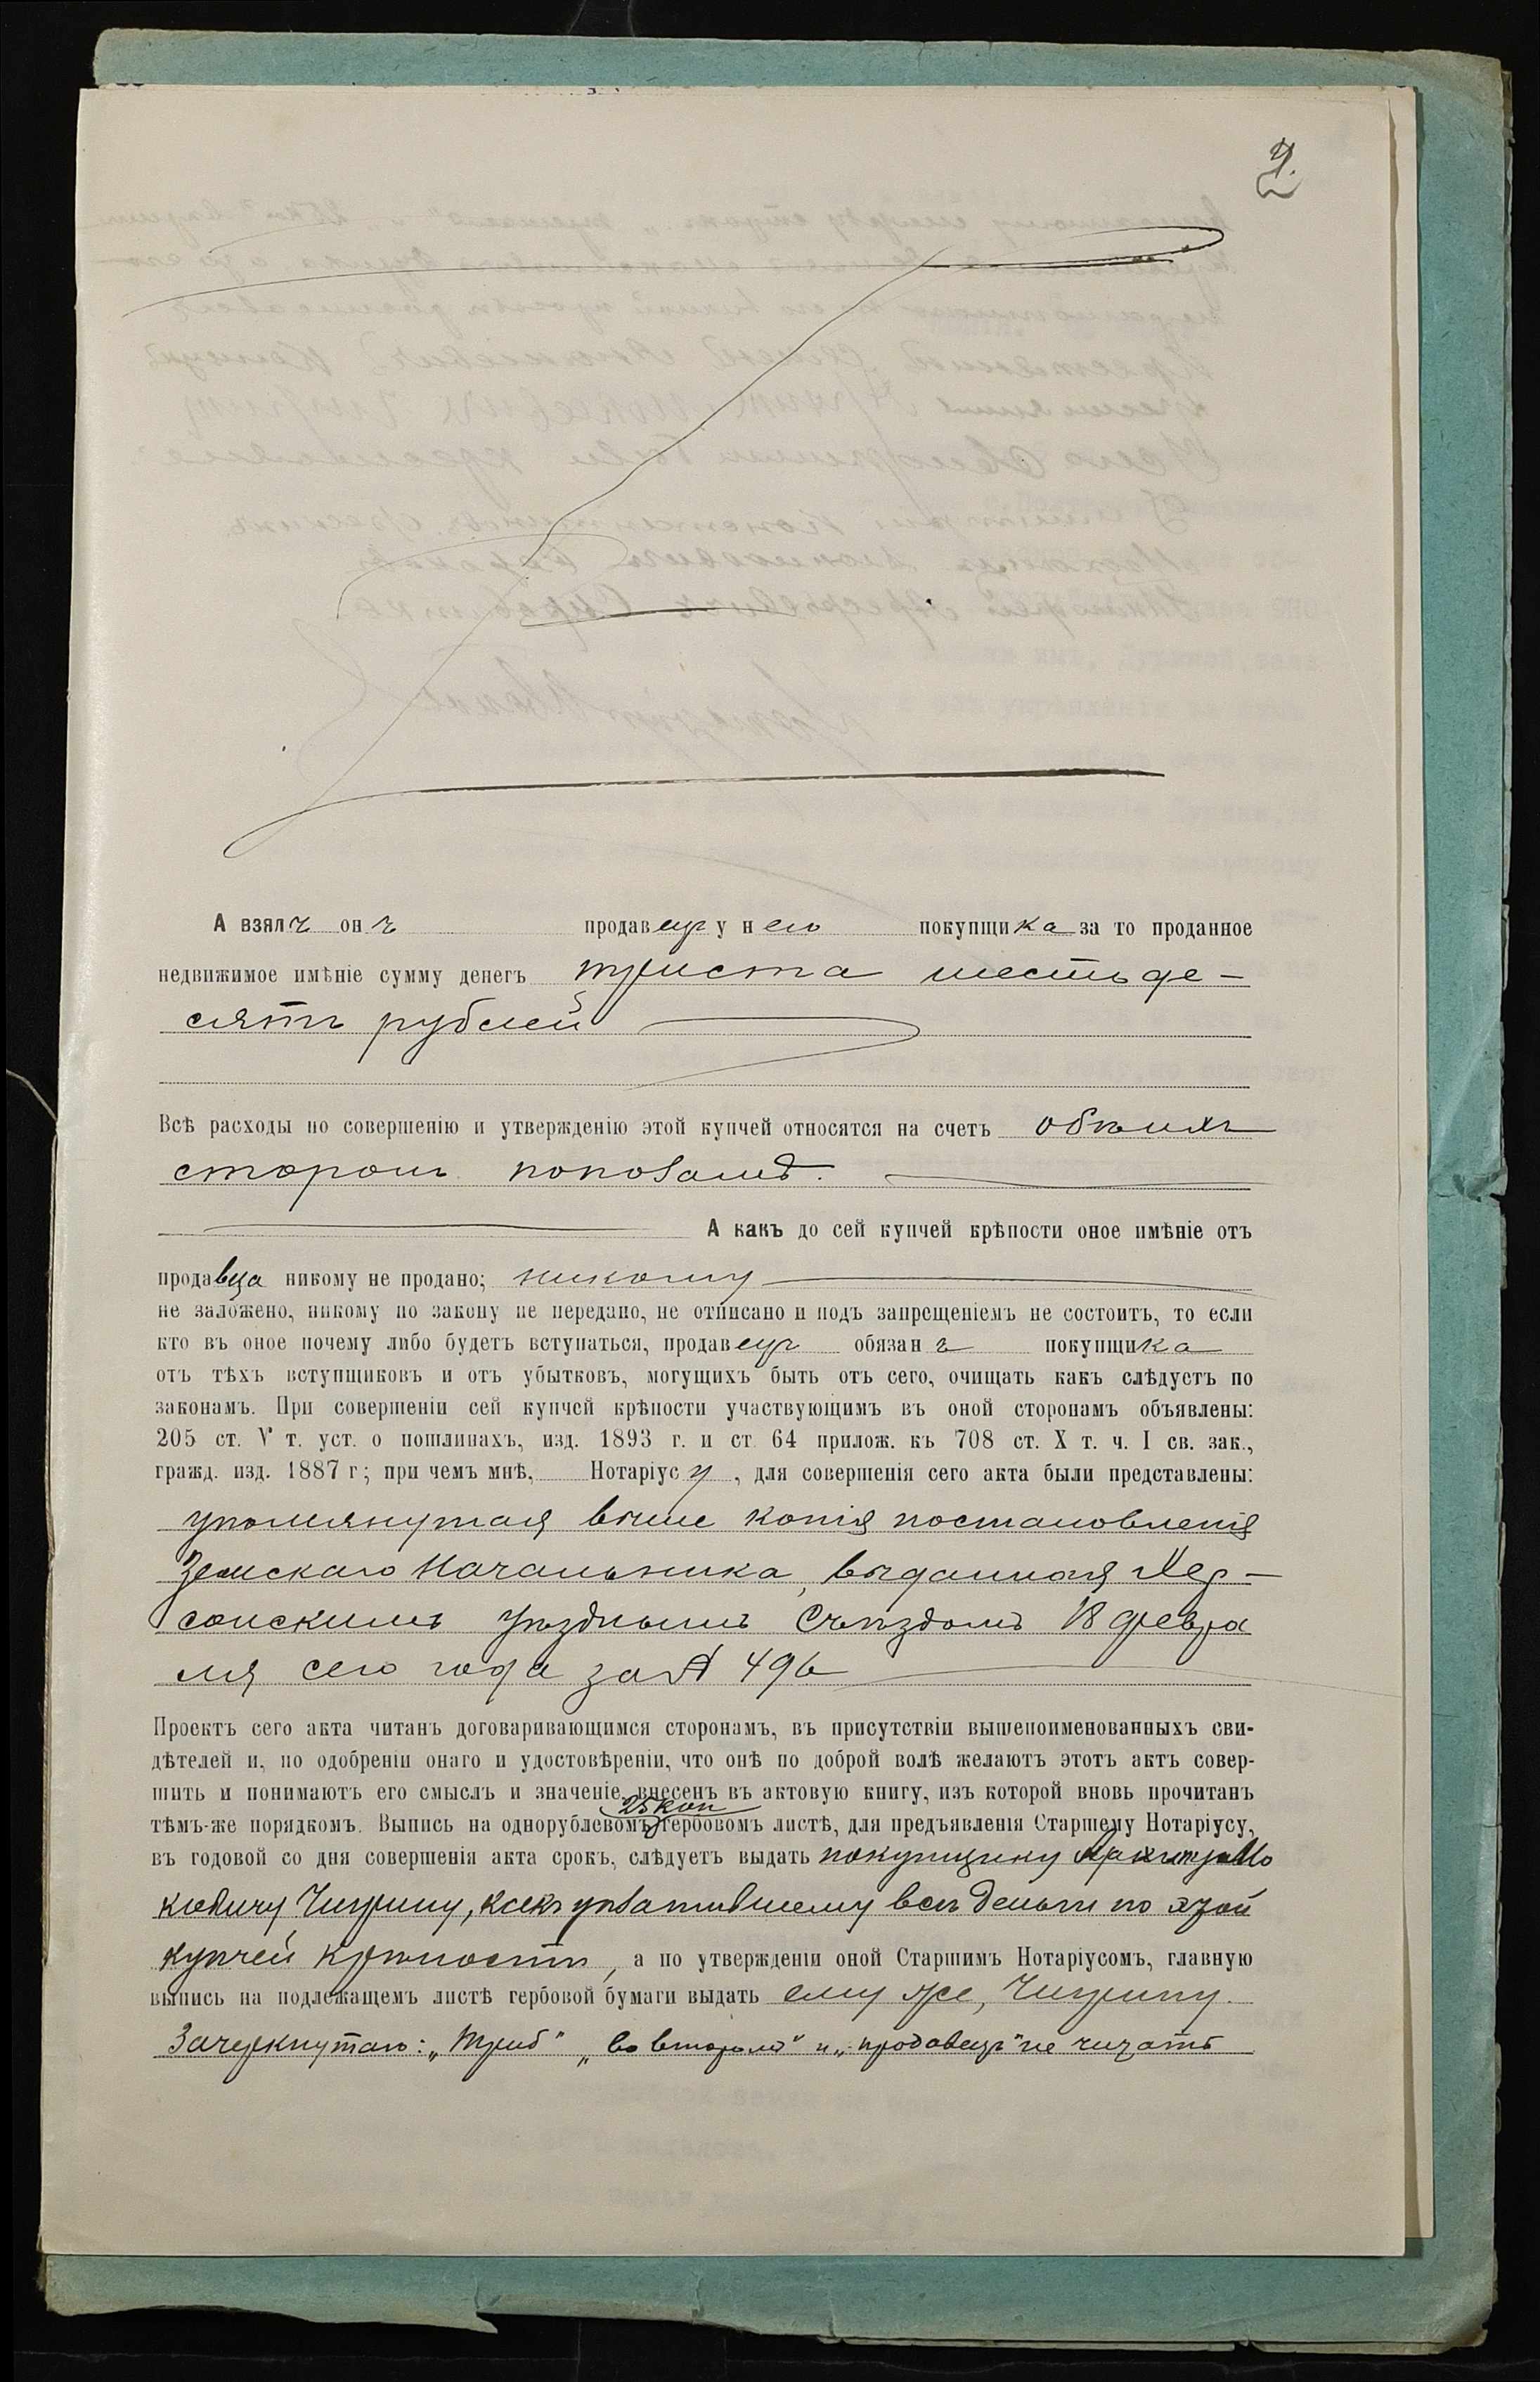 2.
А взялъ онъ продавецъ у него покупщика за то проданное
недвижимое имѣніе сумму денегъ триста шестьде-
сятъ рублей
Всѣ расходы по совершенію и утвержденію этой купчей относятся на счетъ обѣихъ
сторонъ пополамъ.
А какъ до сей купчей крѣпости оное имѣніе отъ
продавца никому не продано; никому
не заложено, никому по закону не передано, не отписано и подъ запрещеніемъ не состоитъ, то если
кто въ оное почему либо будетъ вступаться, продавецъ обязанъ покупщика
отъ тѣхъ вступщиковъ и отъ убытковъ, могущихъ быть отъ сего, очищать какъ слѣдуетъ по
законамъ. При совершеніи сей купчей крѣпости участвующимъ въ оной сторонамъ объявлены:
205 ст. V т. уст. о пошлинахъ, изд. 1893 г. и ст. 64 прилож. къ 708 ст. X т. ч. I св. зак.,
гражд. изд. 1887 г; при чемъ мнѣ, Нотаріусу, для совершенія сего акта были представлены:
упомянутая выше копія постановленія
Земскаго Начальника, выданная Хер-
сонскимъ Уѣзднымъ Съѣздомъ 18 февра
ля сего года за № 496
Проектъ сего акта читанъ договаривающимся сторонамъ, въ присутствіи вышепоименованныхъ сви-
дѣтелей и, по одобреніи онаго и удостовѣреніи, что онѣ по доброй волѣ желаютъ этотъ актъ совер-
шить и понимаютъ его смыслъ и значеніе, внесенъ въ актовую книгу, изъ которой вновь прочитанъ
25 коп
тѣмъ-же порядкомъ. Выпись на однорублевомъ гербовомъ листѣ, для предъявленія Старшему Нотаріусу,
въ годовой со дня совершенія акта срокъ, слѣдуетъ выдать покупщику
Чигрину, какъ уплатившему всѣ деньги по этой
купчей крѣпости, а по утвержденіи оной Старшимъ Нотаріусомъ, главную
выпись на подлежащемъ листѣ гербовой бумаги выдать ему же, Чигрину.
Зачеркнутаго: „Триб" „во второмъ" и „продавецъ" не читать